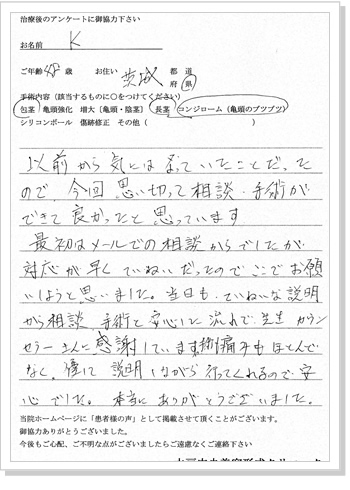 治療後のアンケートに御協力下さい
お名前 K
ご年齢 48 歳 お住い 茨城 都 道 府 県
手術内容（該当するものに○をつけてください）
包茎 亀頭強化 増大〔亀頭・陰茎〕 長茎 コンジローム（亀頭のブツブツ）
シリコンボール 傷跡修正 その他（ ）
以前から気にはなっていたことだった
ので、今回思い切って相談・手術が
できて良かったと思っています
最初はメールでの相談からでしたが
対応が早くていねいだったのでここでお願
いしようと思いました。当日も、ていねいな説明
から相談、手術と安心した流れで、先生 カウン
セラーさんに感謝しています 術痛みもほとんど
なく、優しく説明しながら行ってくれるので安
心でした。本当にありがとうございました。
当院ホームページに「患者様の声」として掲載させて頂くことがございます。
御協力ありがとうございました。
今後もご心配、ご不明な点がございましたらご遠慮なくご連絡下さい